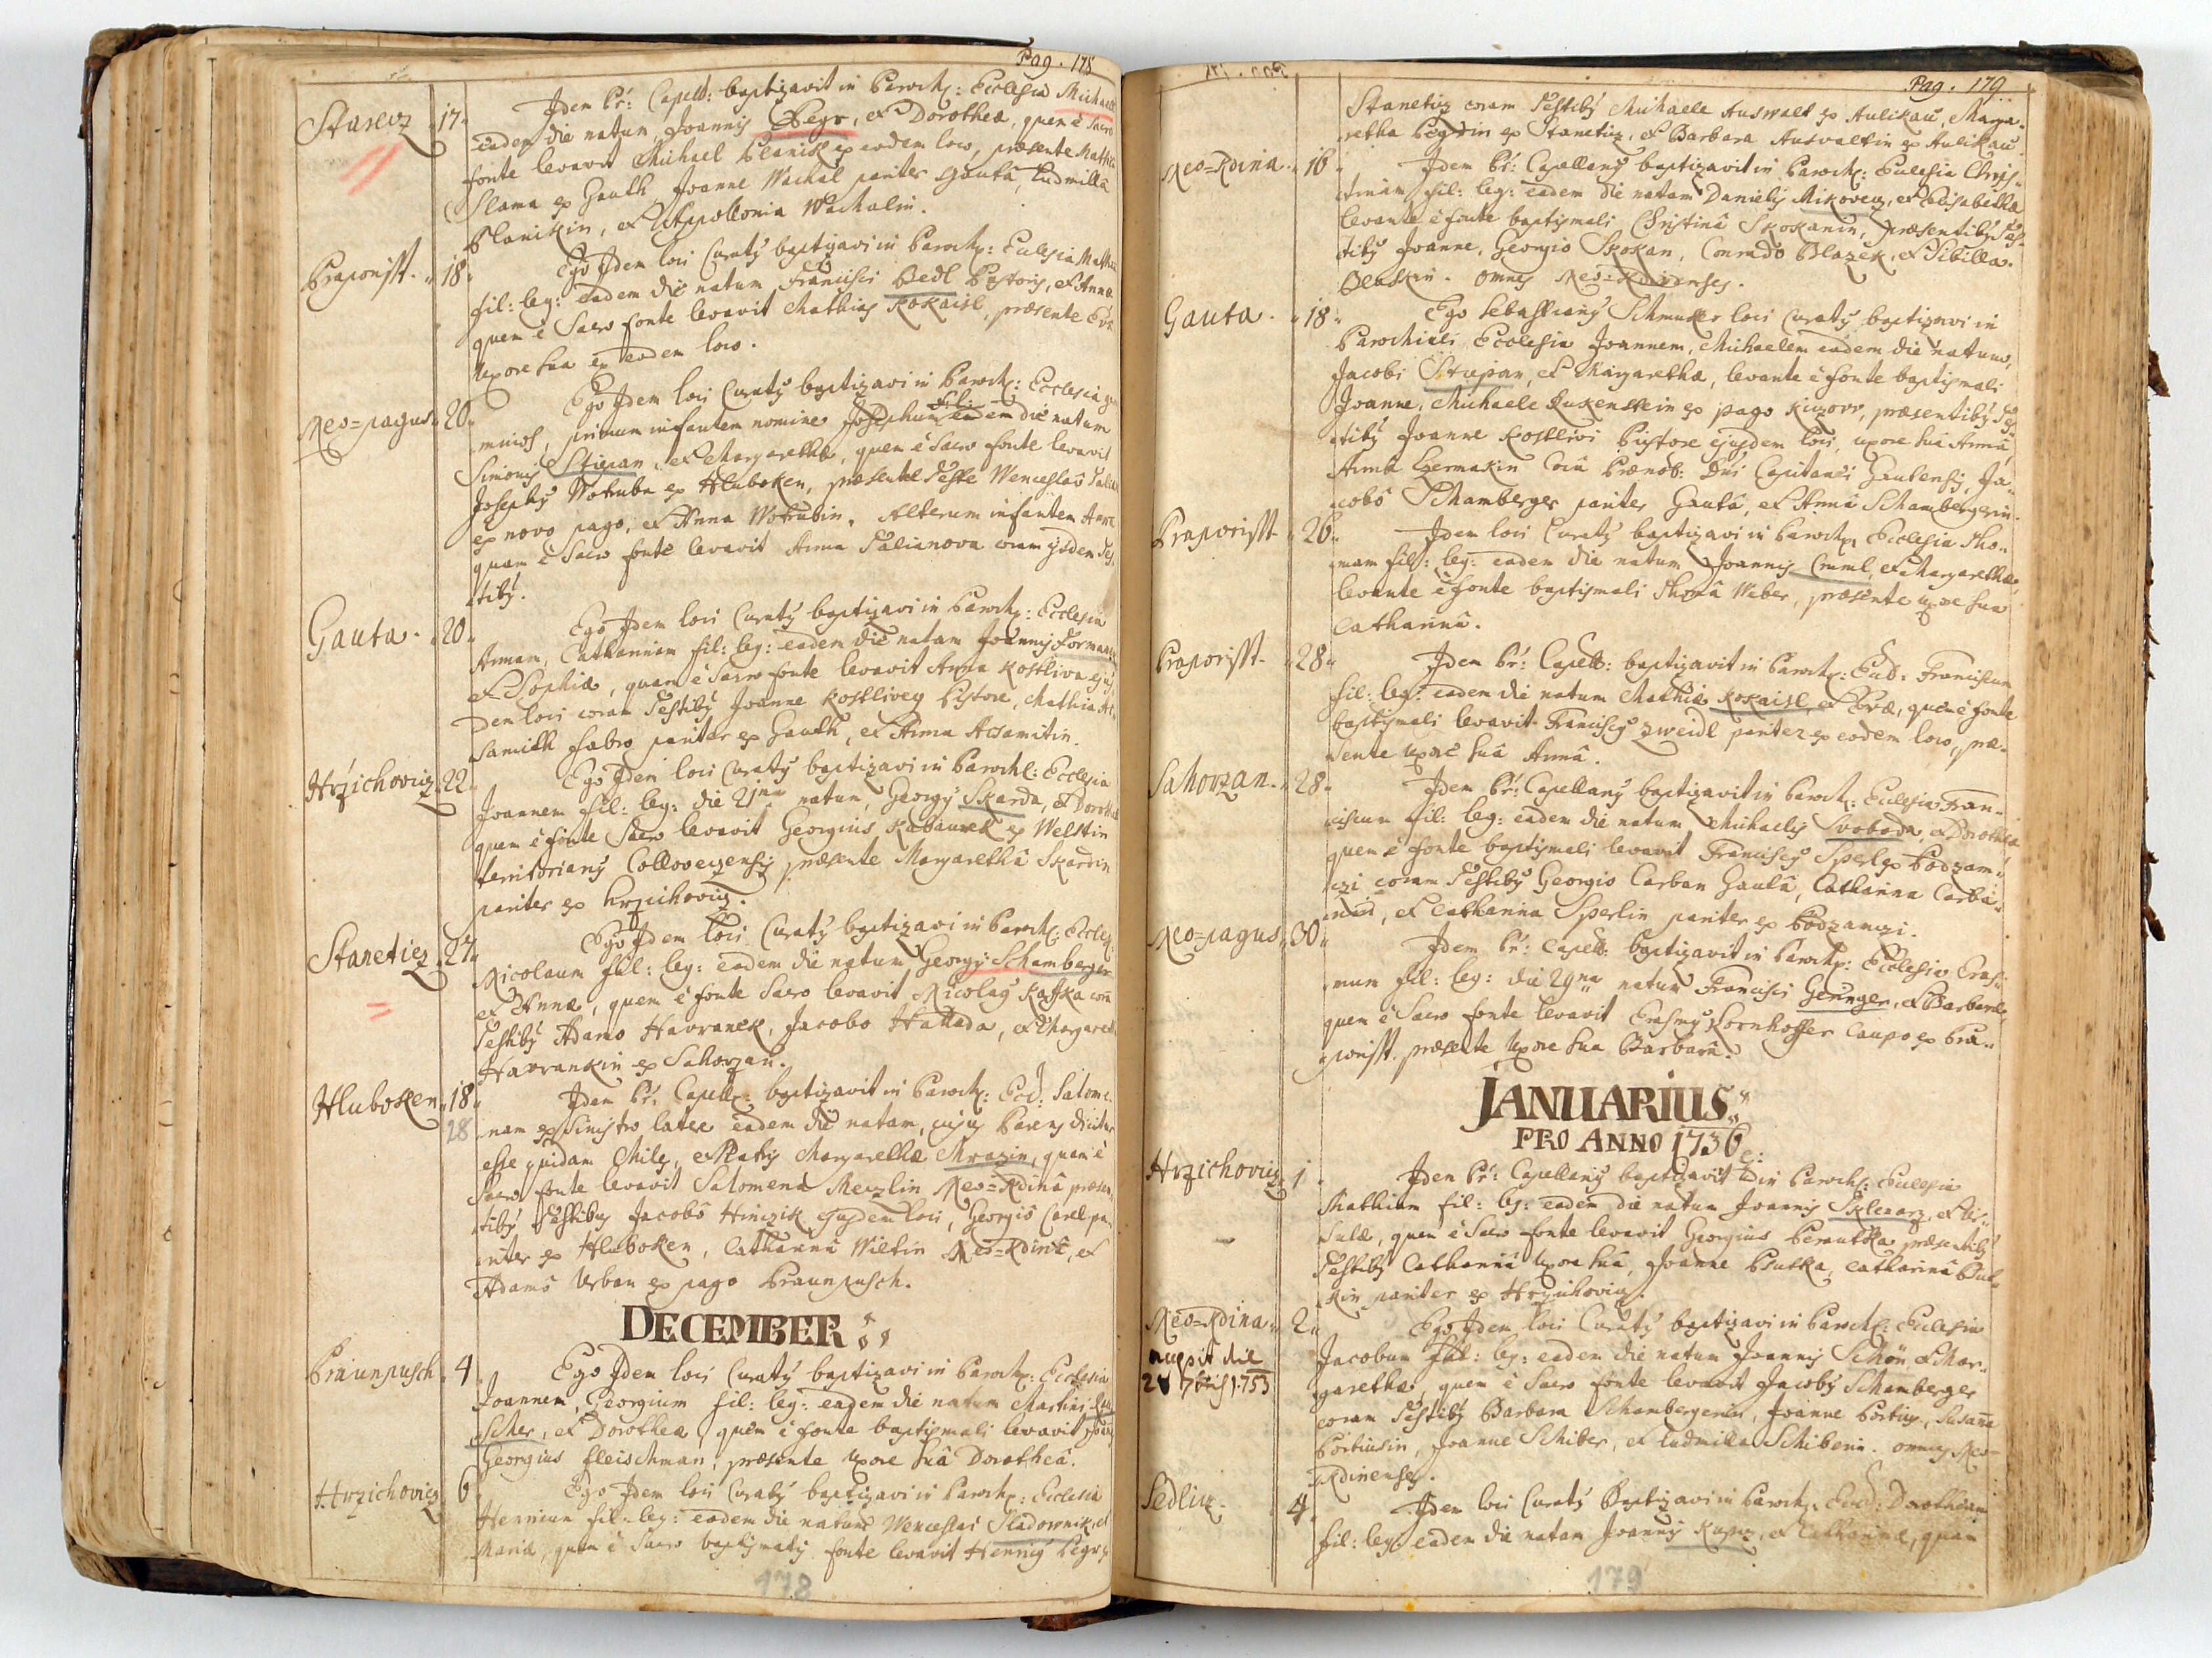 Pag. 178
Starecz 17. Idem Pr: Capell: baptizavit in Paroch: Ecclesia Michaelem
eadem die natum Joannis Begr, et Dorotheæ, quem è Sacro
fonte levavit Michael Planick ex eodem loco, præsente Mathia
Slama ex Gauth, Joanne Wachal pariter Gautâ, Ludmillâ
Planikin, et Appollonia Wachalin.
Praporisst. 18. Ego Idem loci Curatus baptizavi in Paroch: Ecclesia Mathiam
fil: leg: eadem die natum Francisci Bedl Pastoris, et Annæ
quem è Sacro fonte levavit Mathias Kokaisl, præsente Eva
Uxore sua ex eodem loco.
Neo=pagus 20. Ego Idem loci Curatus baptizavi in Paroch: Ecclesia ge
minos, primum infantem nomine Josephum fil: eadem die natum
Simonis Stiepan, et Margarethæ, quem è Sacro fonte levavit
Josephus Wotruba ex Hluboken, præsente Teste Wenceslao
ex novo pago, et Anna Wotrubin. Alterum infantem
quam è Sacro fonte levavit Anna Salianova coram ijsdem Tes
tibus.
Gauta. 20. Ego Idem loci Curatus baptizavi in Paroch: Ecclesia
Annam, Catharinam fil: leg: eadem die natam Joannis Forman
et Sophiæ, quam è Sacro fonte levavit Anna Kostliva ejus
dem loci coram Testibus Joanne Kostlivey Pistore, Mathia Ac
samith fabro pariter ex Gauth, et Anna Acsamitin.
Hržichovicz 22. Ego Idem loci Curatus baptizavi in Paroch: Ecclesia
Joannem fil: leg: die 21ma natum, Georgij Skarda, et Dorotheæ
quem è fonte Sacro levavit Georgius Kabaurek ex Welstin
territorianus Collovecensis præsente Margarethâ Skardin
pariter ex Hrzichovicz.
Stanetiez 27. Ego Idem loci Curatus baptizavi in Paroch: Eccles:
Nicolaum fil: leg: eadem die natum Georgij Schamberger
et Annæ, quem è fonte Sacro levavit Nicolaus Kafka com
Testibus Adamo Havranek, Jacobo Hallada, et Margareth
Havrankin ex Sahorzan.
Hluboken 18. Idem Pr: Capell: baptizavit in Paroch: Eccl: Salome
28 nam ex Sinistro latere eadem die natam, cujus Parens dicitur
esse quidam Miles, et Matris Margarethæ Mrazin, quam è
Sacro fonte levavit Salomena Meczlin Neo=Kdinâ præsen
tibus Testibus Jacobo Hinczik ejusdem loci, Georgio Carel pa
riter ex Hluboken, Catharinâ Wiltin Neo=Kdinâ, et
Adamo Urban ex pago Praunpusch.
DECEMBER
Praunpusch 4. Ego Idem loci Curatus baptizavi in Paroch: Ecclesia
Joannem, Georgium fil: leg: eadem die natum Martini
scher, et Dorotheæ, quem è fonte baptismali levavit Joan:
Georgius Fleischman, præsente Uxore suâ Dorotheâ.
Hrzichovicz 6. Ego Idem loci Curatus baptizavi in Paroch: Ecclesia
Henricum fil: leg: eodem die natum Wenceslai Sladownik, et
Mariæ, quem è Sacro baptismatis fonte levavit Henricus Begr
178
Pag. 179
Stanetiez coram Testibus Michaele Auswalt ex Aulikau, Marga
retha Begrin ex Stanetiez, et Barbara Auswaltin ex Aulikau.
Neo=Kdina. 16. Idem Pr: Capellanus baptizavit in Paroch: Ecclesia Chris
tinam fil: leg: eadem die natam Danielis Mikovecz, et Elisabethæ
levante è fonte baptismali Christinâ Skokanin, præsentibus Tes
tibus Joanne, Georgio Skokan, Conrado Blazek, et Sibilla
Blaskin. omnes Neo=Kdinenses.
Gauta. 18. Ego Sebastianus Schmuker loci Curatus baptizavi in
Parochiali Ecclesia Joannem, Michaelem eadem die natum,
Jacobi Stiepan, et Margarethæ, levante è fonte baptismali
Joanne, Michaele Kukenstein ex pago Kiczow, præsentibus Tes
tibus Joanne Kostlivi Pistore ejusdem loci, uxore suâ Annâ,
Annâ Czermakin Coiu Prænob: Dni Capitanei Gautensis, Ja
cobo Schamberger pariter Gautâ, et Annâ Schambergerin.
Praporisst 26. Idem loci Curatus baptizavi in Paroch: Ecclesia Tho
mam fil: leg: eadem die natum Joannis Cmml, et Margarethæ,
levante è fonte baptismali Thoma Weber, præsente uxore sua
Catharinâ.
Praporisst. 28. Idem Pr: Capell: baptizavit in Paroch: Eccl: Franciscum
fil: leg: eadem die natum Mathiæ Kokaisl, et Evæ, quem è fonte
baptismali levavit Franciscus Zweidl pariter ex eodem loco, præ
sente uxore suâ Annâ.
Sahorzan. 28. Idem Pr: Capellanus baptizavit in Paroch: Ecclesia Fran
ciscum fil: leg: eadem die natum Michaelis Svoboda et Dorotheæ
quem è fonte baptismali levavit Franciscus Sperl ex Podzam
czi coram Testibus Georgio Carban Gautâ, Catharina Carba
nin, et Catharina Sperlin pariter ex Podzamczi.
Neo=pagus 30. Idem Pr: Capell: baptizavit in Paroch: Ecclesia Eras
mum fil: leg: die 29na natum Francisci Geringer, et Barbaræ,
quem è Sacro fonte levavit Erasmus Kornhoffer Caupo ex Pra
porisst. præsente Uxore sua Barbarâ.
JANUARIUS
PRO ANNO 1736
Hrzichovicz 1. Idem Pr: Capellanus baptizavit in Paroch: Ecclesia
Mathiam fil: leg: eadem die natum Joannis Sklenarz, et Ur
sulæ, quem è Sacro fonte levavit Georgius Perautka præsentibus
Testibus Catharinâ Uxore suâ, Joanne Butka, Catharinâ But
kin pariter ex Hrzichovicz.
Neo=Kdina 2. Ego Idem loci Curatus baptizavi in Paroch: Ecclesia
nupsit die Jacobum fil: leg: eadem die natum Joannis Schön et Mar
28 7bris 1753 garethæ, quem è Sacro fonte levavit Jacobus Schamberger
coram Testibus Barbara Schambergerin, Joanne Portius, Susanna
Portiusin, Joanne Schiber, et Ludmilla Schiberin. omnes Neo=
Kdinenses.
Sedlicz. 4. Idem loci Curatus Baptizavi in Paroch: Eccl: Dorotheam
fil: leg: eadem die natam Joannis Kupcz, et Catharinæ, quam
179